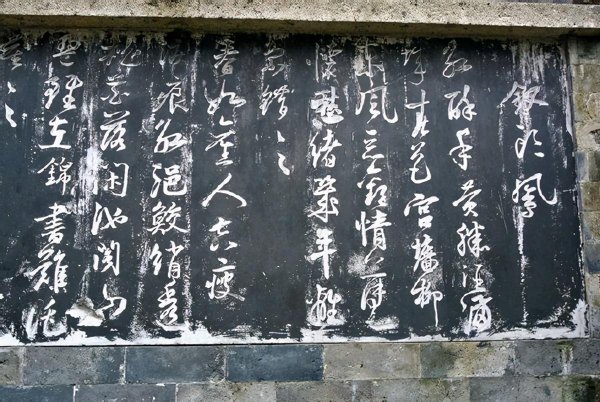 釵頭鳳
紅酥手黃縢酒滿
城春色宮牆柳
東風惡歡情薄
懷愁緒幾年離
索錯々々
春如舊人空瘦
淚痕紅浥鮫綃透
桃花落閒池閣山
盟雖在錦書難托
莫々々